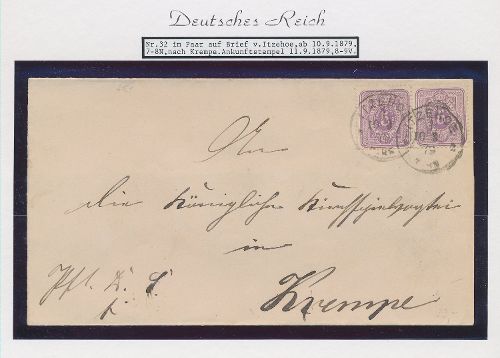 Deutsches Reich
Nr.32 im Paar auf Brief v.Itzehoe,ab 10.9.1879,
7-8N,nach Krempe.Ankunftstempel 11.9.1879,8-9V.
ITZEHOE
ITZEHOE
An
die Königliche Kirchspielvogtei
in
Krempe